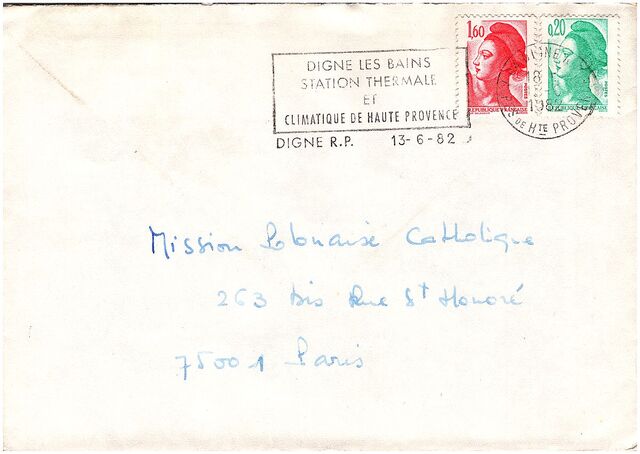 1,60
0,20
RÉPUBLIQUE FRANÇAISE
DIGNE LES BAINS
STATION THERMALE
ET
CLIMATIQUE DE HAUTE PROVENCE
DIGNE R.P. 13-6-82
18 H
1982
DE HTE PROVENCE
Mission Polonaise Catholique
263 Bis Rue St Honoré
75001 Paris